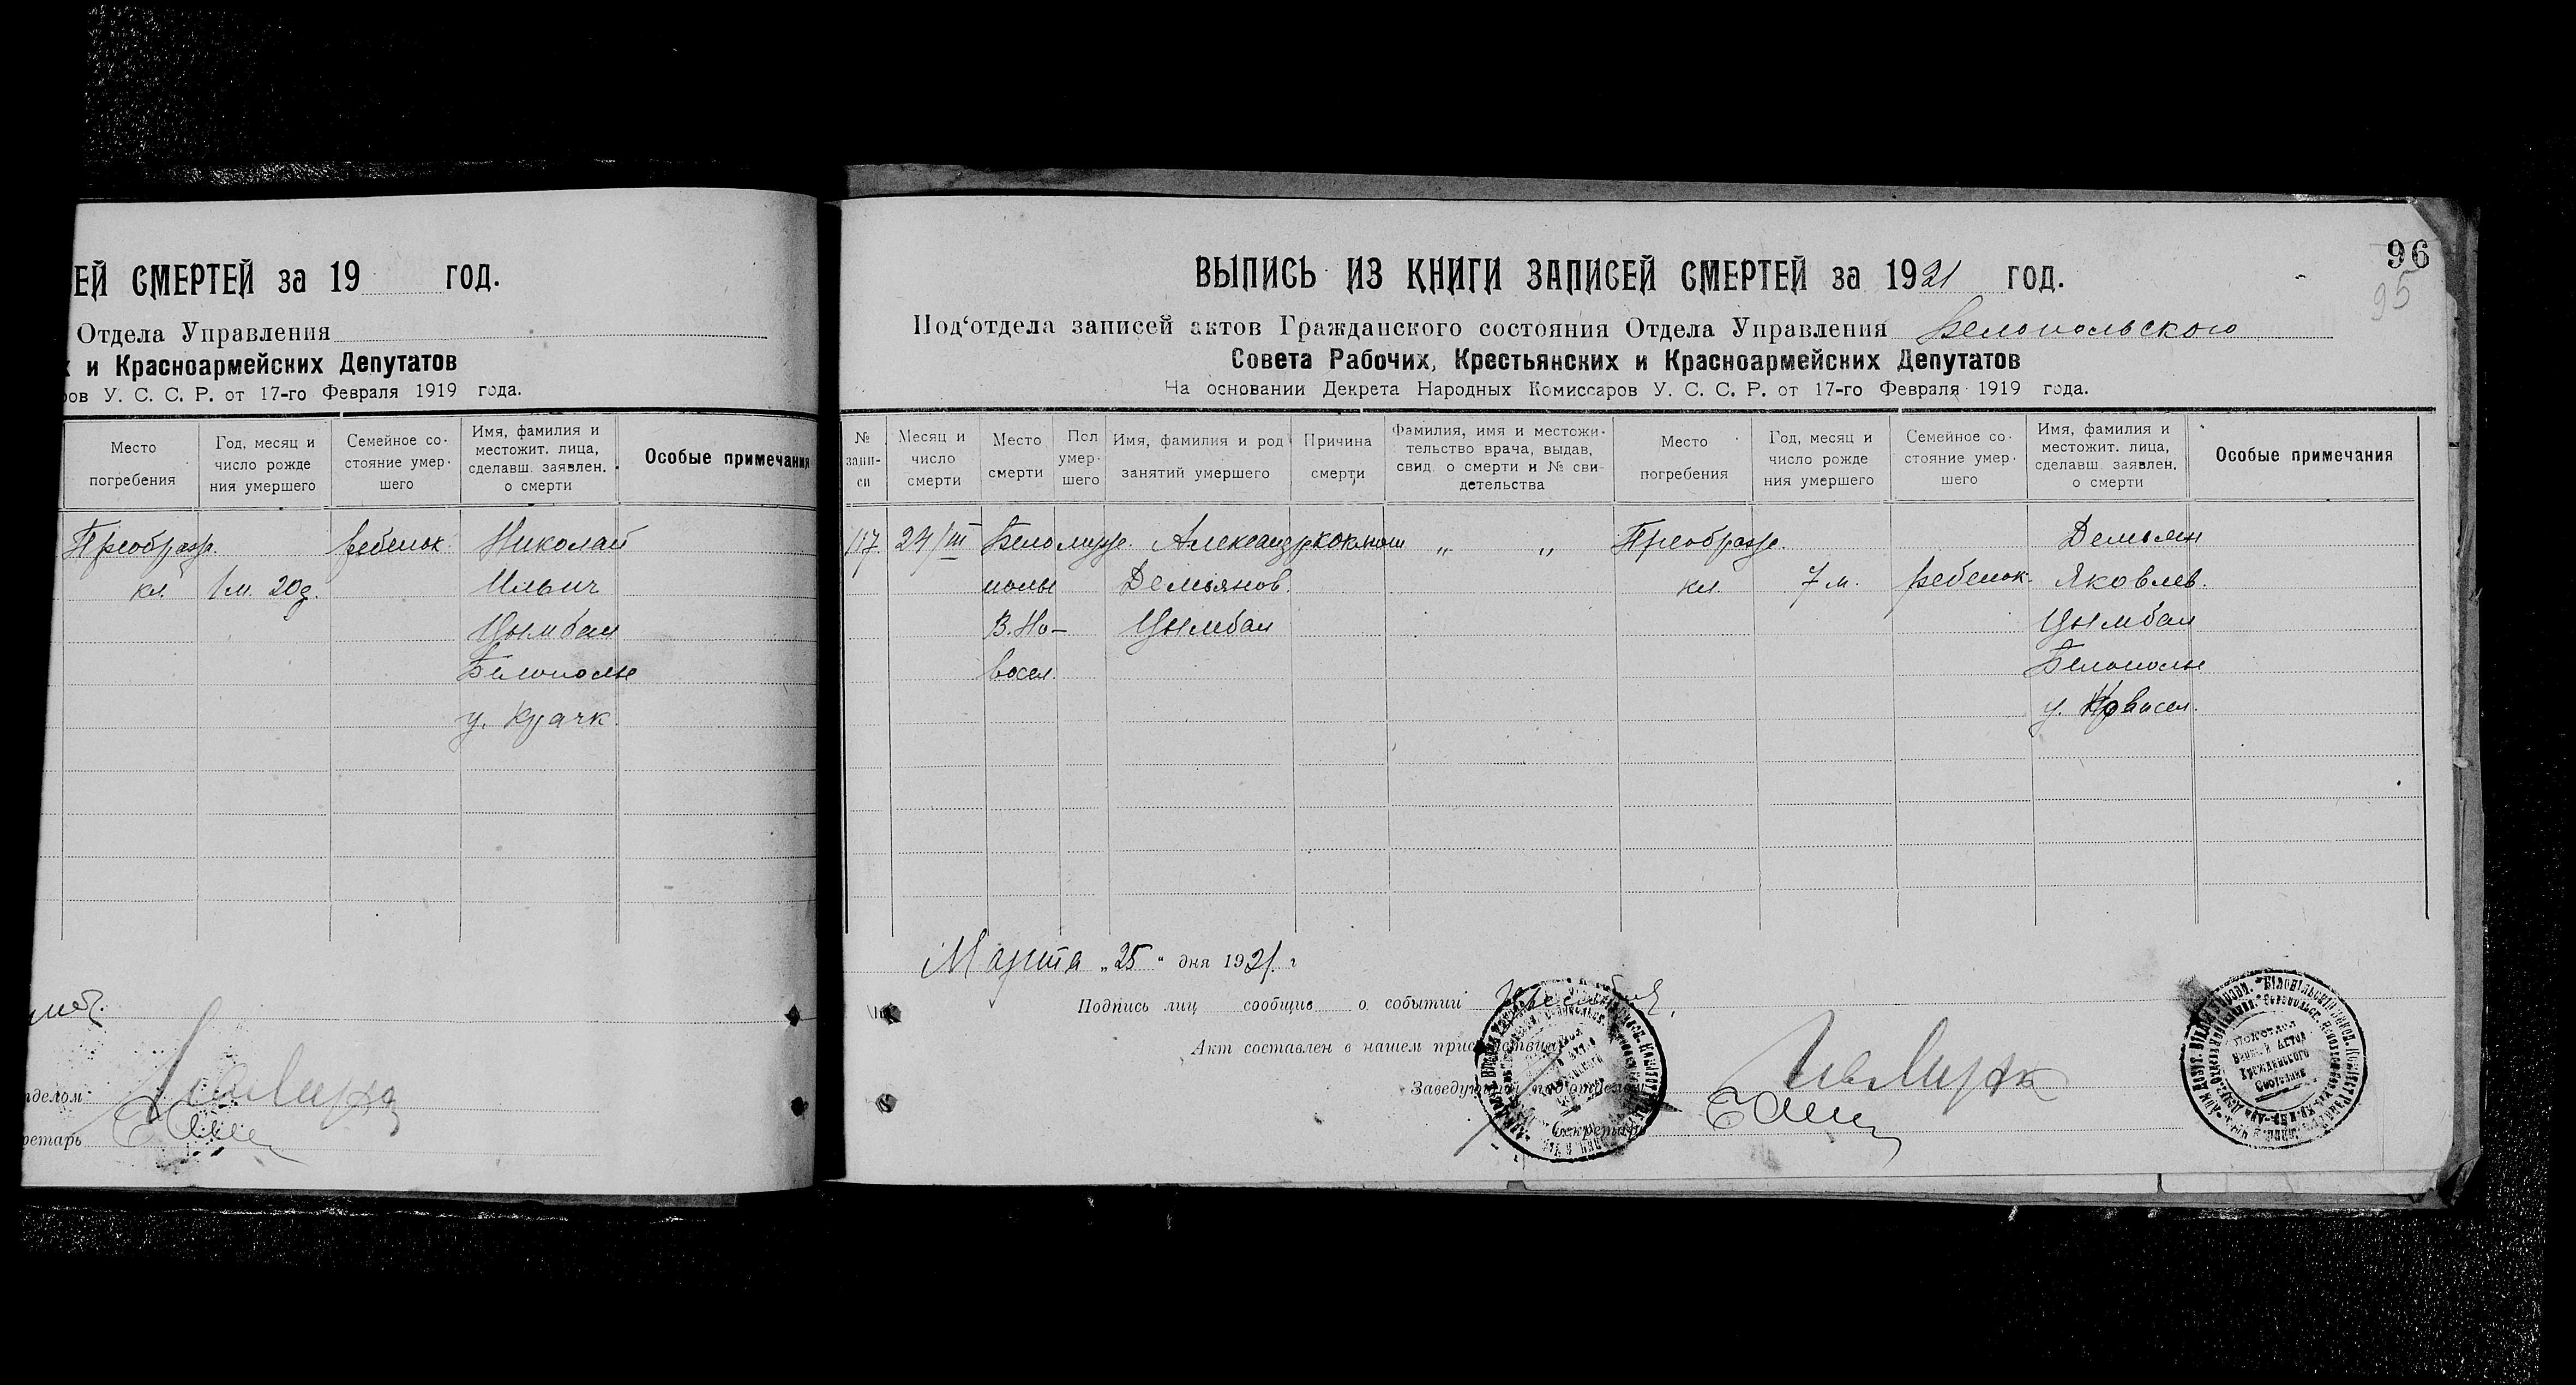 ЕЙ СМЕРТЕЙ за 19 год.
Отдела Управления
х и Красноармейских Депутатов
ров У. С. С. Р. от 17-го Февраля 1919 года.
Место погребения
Год, месяц и число рожде ния умершего
Семейное со- стояние умер- шего
Имя, фамилия и местожит. лица, сделавш. заявлен. о смерти
Особые примечания
Преображ. ребенок. Николай
кл. 1 м. 20 д. Ильич
Цымбал
Белополье
у.
тделом
ретарь
96
95
ВЫПИСЬ ИЗ КНИГИ ЗАПИСЕЙ СМЕРТЕЙ за 1921 год.
Под‘отдела записей актов Гражданского состояния Отдела Управления Белопольского
Совета Рабочих, Крестьянских и Красноармейских Депутатов
На основании Декрета Народных Комиссаров У. С. С. Р. от 17-го Февраля 1919 года.
№ запи- си
Месяц и число смерти
Место смерти
Пол умер- шего
Имя, фамилия и род занятий умершего
Причина смерти
Фамилия, имя и местожи- тельство врача, выдав, свид. о смерти и № сви- детельства
Место погребения
Год, месяц и число рожде ния умершего
Семейное со- стояние умер- шего
Имя, фамилия и местожит. лица, сделавш. заявлен. о смерти
Особые примечания
117 24/III Бело муж. Александр коклюш „ „ Преображ. Демьян
полье Демьянов. кл. 7 м. ребенок. Яковлев.
В. Но- Цымбал Цымбал
восел. Белополье
у. Новосел.
Марта „25“ дня 1921. г
Подпись лиц сообщив о событии
Акт составлен в нашем присутствии
Заведующий под‘отделом
Секретарь